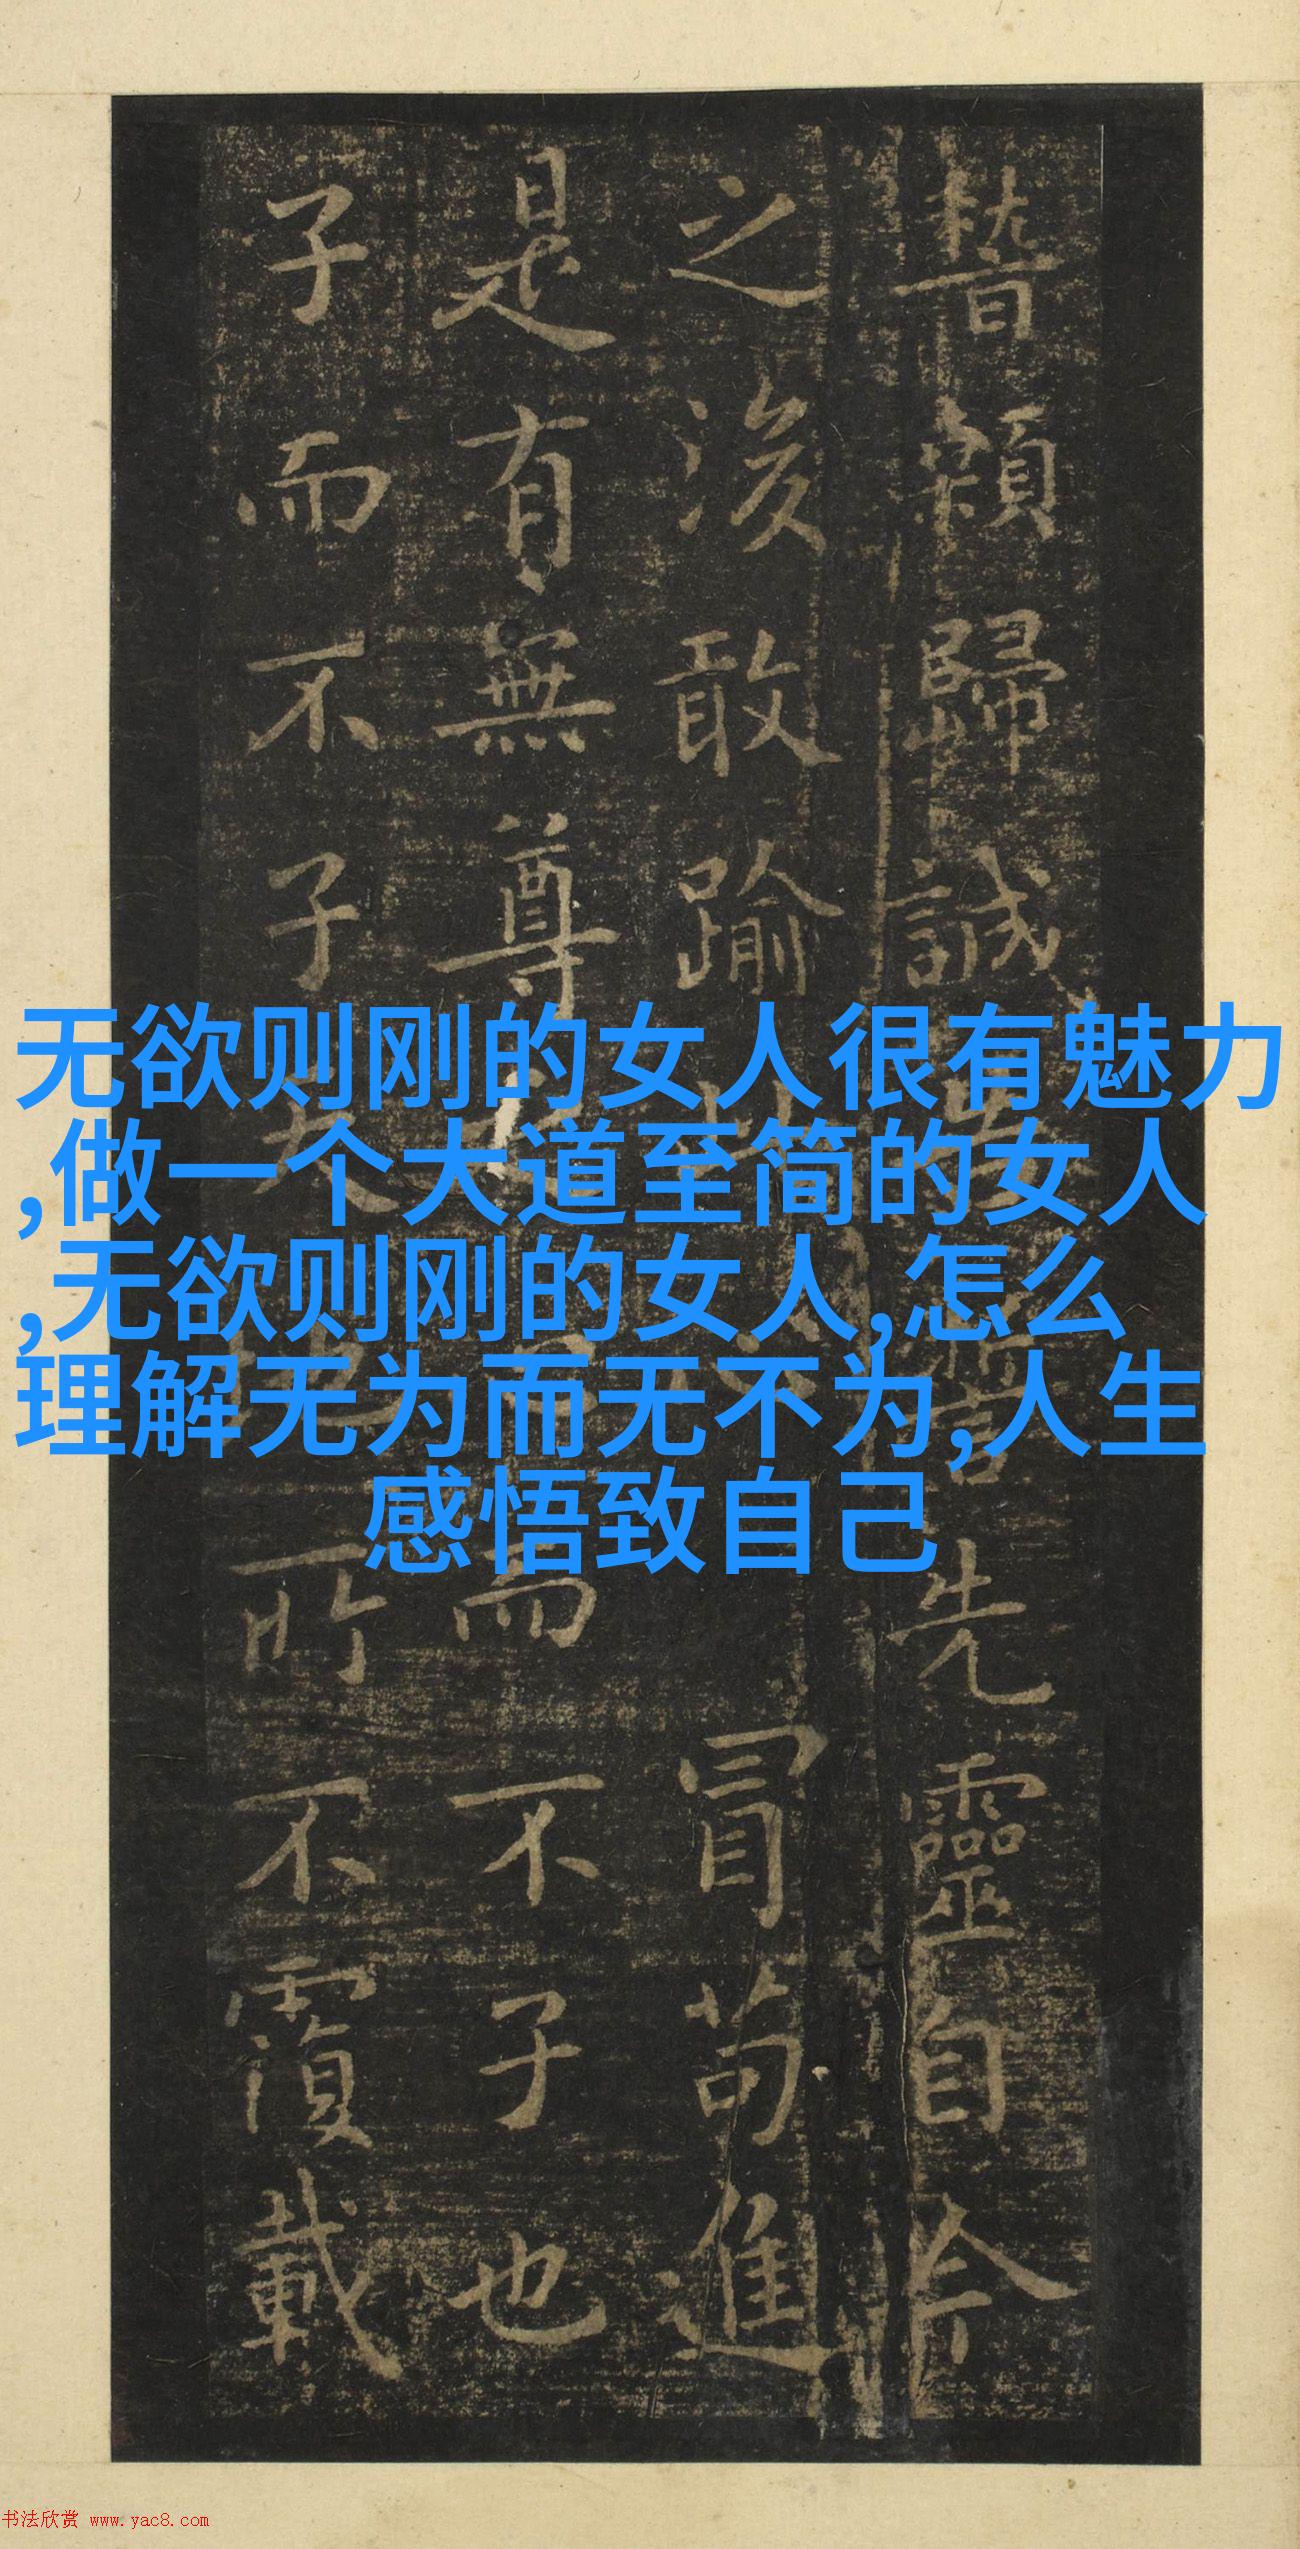 稽顙歸誠誓先靈自今
之後敢踰此心冒苟進
是有無尊而不子也
子而不子天地所不覆載
无欲则刚的女人很有魅力
,做一个大道至简的女人
,无欲则刚的女人,怎么
理解无为而无不为,人生
感悟致自己
书法欣赏 www.yac8.com